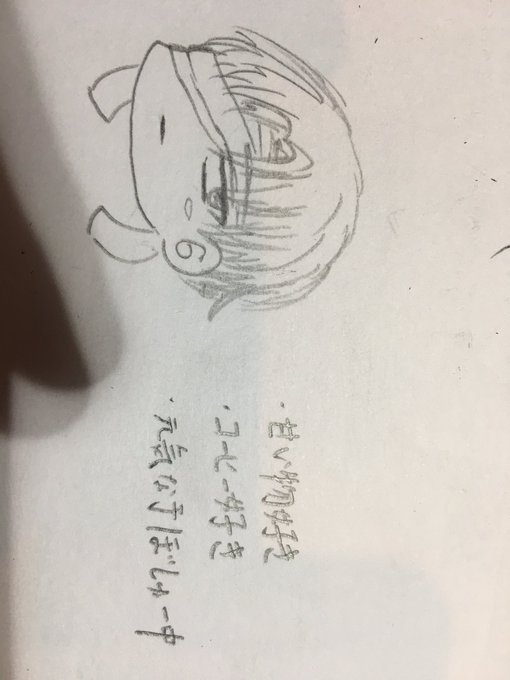 6
・甘い物好き
・コーヒー好き
・元気な子ぼしゅー中